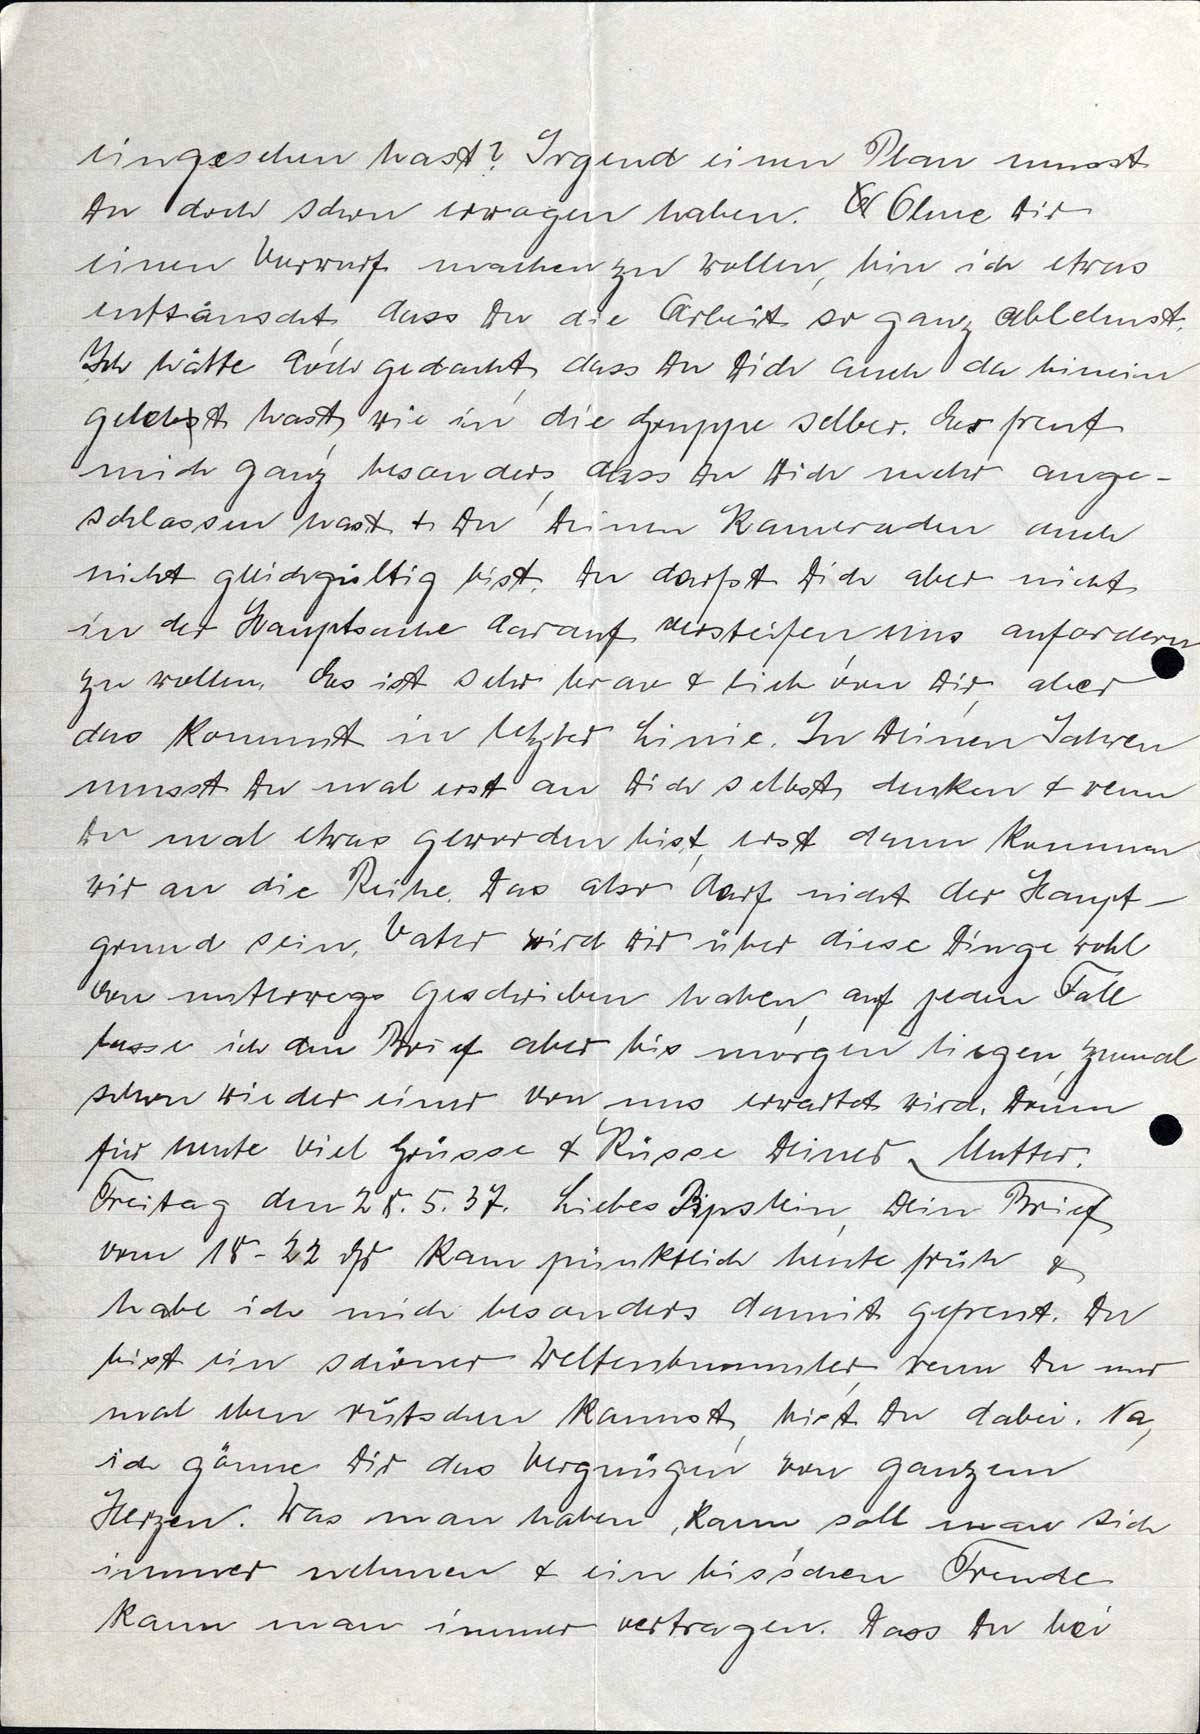 eingesehen hast? Irgend einen Plan musst
Du doch schon erwogen haben. Ohne Dir
einen Vorwurf machen zu wollen, bin ich etwas
enttäuscht, dass Du die Arbeit so ganz ablehnst.
Ich hätte doch gedacht, dass Du Dich auch da hinein
gelebt hast, wie in die Gruppe selber. Es freut
mich ganz besonders, dass Du Dich mehr ange-
schlossen hast & Du Deinen Kameraden auch
nicht gleichgültig bist. Du darfst Dich aber nicht
in der Hauptsache darauf versteifen, uns anfordern
zu wollen. Es ist sehr brav & lieb von Dir, aber
das kommt in letzter Linie. In Deinen Jahren
musst Du mal erst an Dich selbst denken & wenn
Du mal etwas geworden bist, erst dann kommen
wir an die Reihe. Das also darf nicht der Haupt-
grund sein. Vater wird Dir über diese Dinge wohl
von unterwegs geschrieben haben, auf jeden Fall
lasse ich den Brief aber bis morgen liegen, zumal
schon wieder einer von uns erwartet wird. Dann
für heute viel Grüsse & Küsse Deiner Mutter.
Freitag den 28. 5. 37. Liebes Pipslein, Dein Brief
vom 18-22 ds kam pünktlich heute früh &
habe ich mich besonders damit gefreut. Du
bist ein schöner Weltenbummler, wenn Du nur
mal eben rutschen kannst, bist Du dabei. Na,
ich gönne Dir das Vergnügen von ganzem
Herzen. Was man haben kann soll man sich
immer nehmen & ein bis'chen Freude
kann man immer vertragen. Dass Du bei